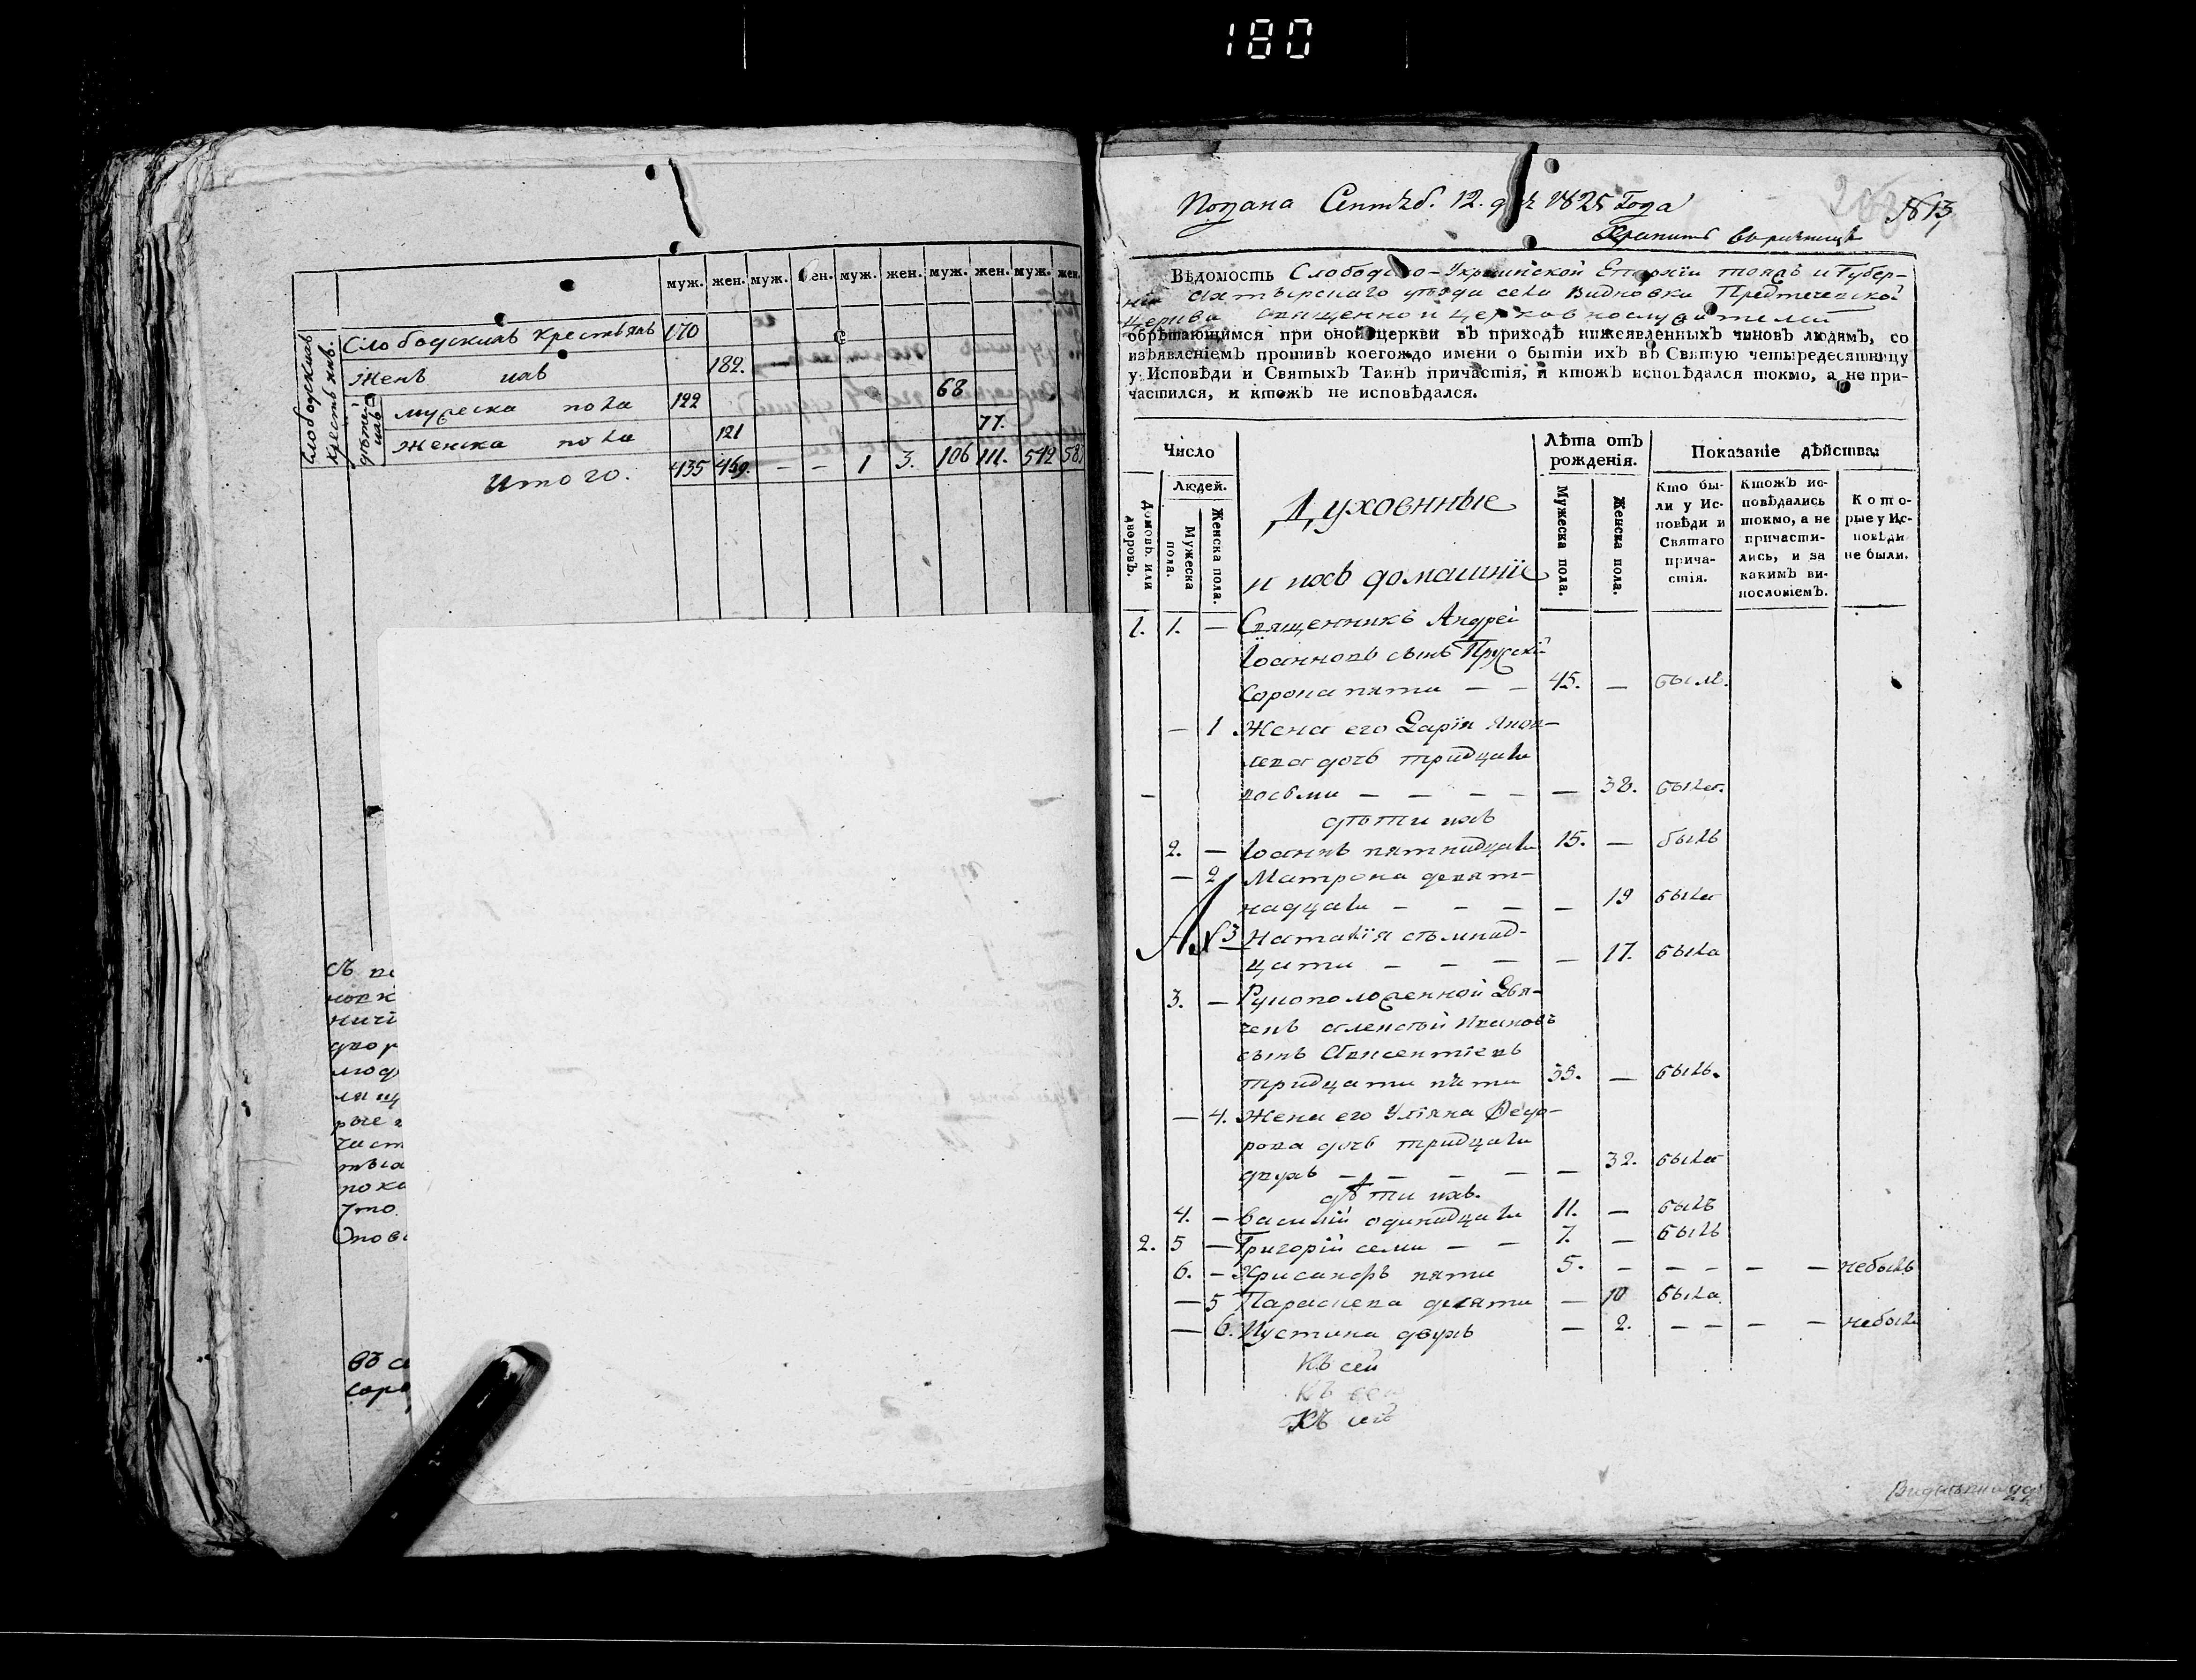 180
муж. жен. муж. жен. муж. жен. муж. жен. муж. жен.
Слободскихъ крестьянъ
Слободскихъ Крестьянъ 170
Женъ ихъ 182.
дѣтей ихъ
мужеска пола 122 68
Женска пола 121 77.
Итого. 435 469. — — 1 3. 106 111. 542 58
въ се
Подана Сентяб. 12. дня 1825 Года
№ 13
Вѣдомость Слободско-Украинской Епархіи тояжъ и Губер-
ніи Ахтырскаго уѣзда села Видновки Предтечевской
Церкви священно и церковнослужителей
обрѣтающимся при оной церкви въ приходѣ нижеявленныхъ чиновъ людямъ, со
изъявленіемъ противъ коегождо имени о бытіи ихъ въ Святую четыредесятницу
у Исповѣди и Святыхъ Таинъ причастія, и ктожъ исповѣдался токмо, а не при-
частился, и ктожъ не исповѣдался.
Число
Домовъ или дворовъ.
Людей.
Мужеска пола.
Женска пола.
Духовныѣ
и ихъ домашніе
Лѣта отъ рожденія.
Мужеска пола.
Женска пола.
Показаніе дѣйства:
Кто бы-
ли у Ис-
повѣди и
Святаго
прича-
стія.
Ктожъ ис-
повѣдались
токмо, а не
причасти-
лись, и за
какимъ ви-
нословіемъ.
Кото-
рые у Ис-
повѣди
не были.
1. 1. — Священникъ Андрей
Іоанновъ сынъ Прускій
сорока пяти — — 45. — былъ.
— 1 Жена его Дарія Яков-
лева дочь тридцати
восьми — — — — — 38. была.
дѣти ихъ
2. — Іоаннъ пятнадцати 15. — былъ
— 2 Матрона девят-
надцати — — — — 19 была
3 Наталія семнад-
цати — — — — 17. была
3. — Рукоположенной Дья-
чекъ Алексѣй Ивановъ
сынъ Авксентіевъ
тридцати пяти 35. — былъ.
— 4. Жена его Уліяна Федо-
рова дочь тридцати
двухъ — — — — — 32. была
дѣти ихъ.
4. — Василій одинадцати 11. — былъ
2. 5 — Григорій семи — — 7. — былъ
6. — Хрисанфъ пяти 5. — — — — — небылъ
— 5 Параскева десяти — 10 была
— 6. Иустина двухъ — 2. — — — — небыла
Къ сей
Къ сей
Къ сей